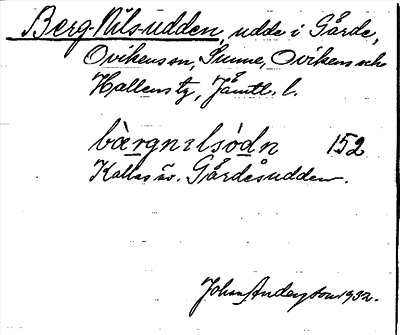 Berg-Nils-udden, udde i Gårde,
Ovikens sn, Sunne, Ovikens och
Hallens tg, Jämtl. l.
bàrgnɪlsódn 152
Kallas äv. Gårdesudden.
Johan Anderson 1932.